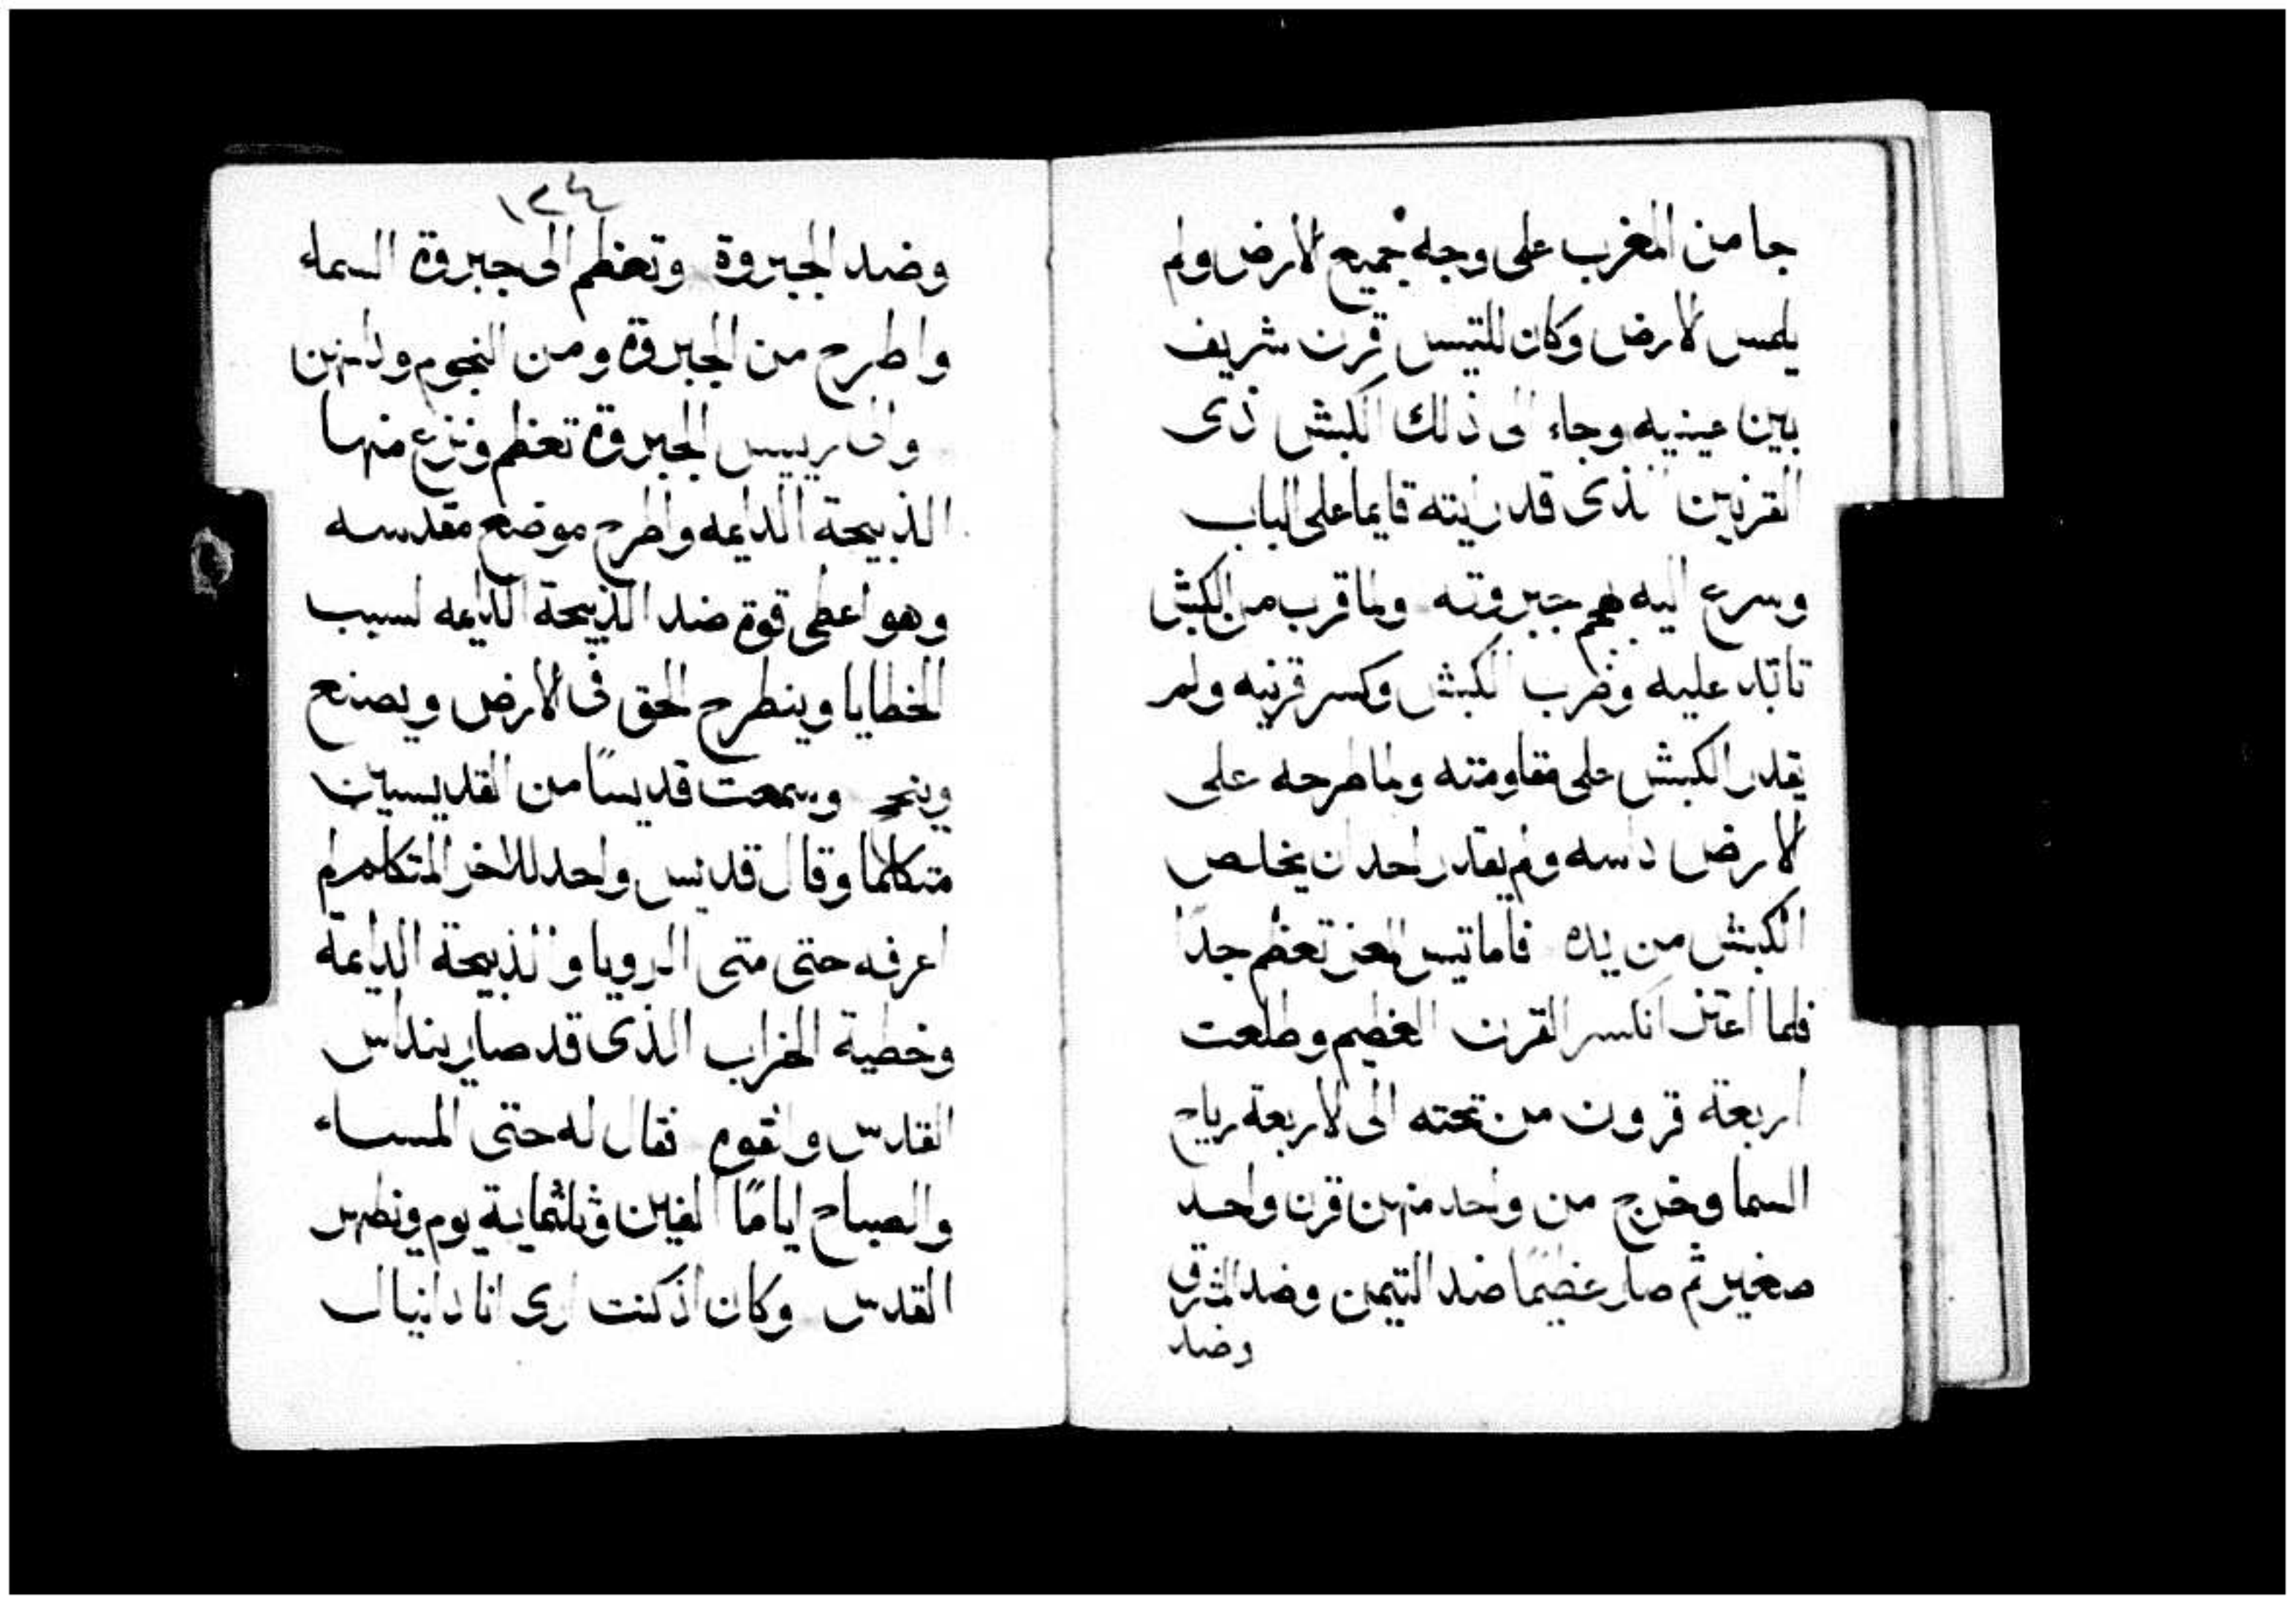 جا من المغرب على وجه جميع الارض ولم
يلمس الارض وكان للتيس قرن شريف
بين عينيه وجاء الى ذلك الكبش ذى
القرنين الذى قد رايته قايما على الباب
وسرع اليه بهم جبروته ولما قرب من الكبش
عليه وضرب الكبش وكسر قرنيه ولم
يقدر الكبش على مقاومته ولما طرحه على
الارض داسه ولم يقدر احد ان يخلص
الكبش من يده فاما تيس المعز تعظم جدًا
فلما اعتز انكسر القرن العظيم وطلعت
اربعة قرون من تحته الى الاربعة رياح
السما وخرج من واحد منهن قرن واحد
صغير ثم صار عظيمًا ضد التيمن وضد المشرق
وضد
١٣٤
وضد الجبروة وتعظم الى جبروة السماء
واطرح من الجبروة ومن النجوم وداسهن
والى رييس الجبروة تعظم ونزع منها
الذبيحة الدايمه واطرح موضع مقدسه
وهو اعطى قوة ضد الذبيحة الدايمه لسبب
الخطايا وينطرح الحق فى الارض ويصنع
وينجح وسمعت قديسًا من القديسين
متكلمًا وقال قديس واحد للاخر المتكلم لم
اعرفه حتى متى الرويا والذبيحة الدايمة
وخطية الخراب الذى قد صار ينداس
القدس والقوم فقال له حتى المساء
والصباح ايامًا الفين وثلثماية يوم ويطهر
القدس وكان اذ كنت ارى انا دانيال